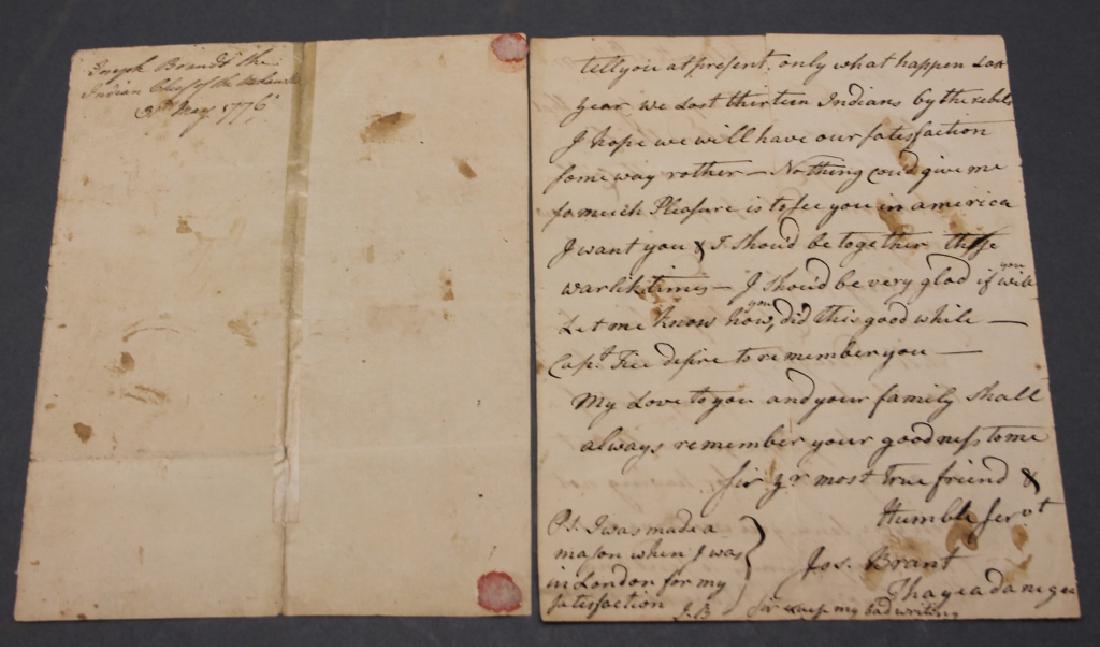 Joseph Brandt the
Indian Chief of the Mohawks
May 1776
tell you at present. only what happen Last
year we Lost thirteen Indians by the rebels
I hope we will have our satisfaction
some way rother — Nothing coud give me
so much Pleasure is to see you in america
I want you & I shou'd be together these
warlik times — I shou'd be very glad if you will
Let me know how you did this good while —
Capt. Tice desire to remember you —
My Love to you and your family shall
always remember your goodness to me
Sir yr most True friend &
Humble Servt
Jos. Brant
Thayeadanegea
Ps. I was made a
mason when I was
in London for my
satisfaction
J. B
Sir my bad writing